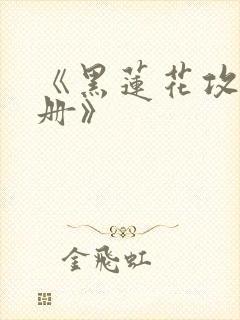 《黑蓮花攻
册》
金飛虹